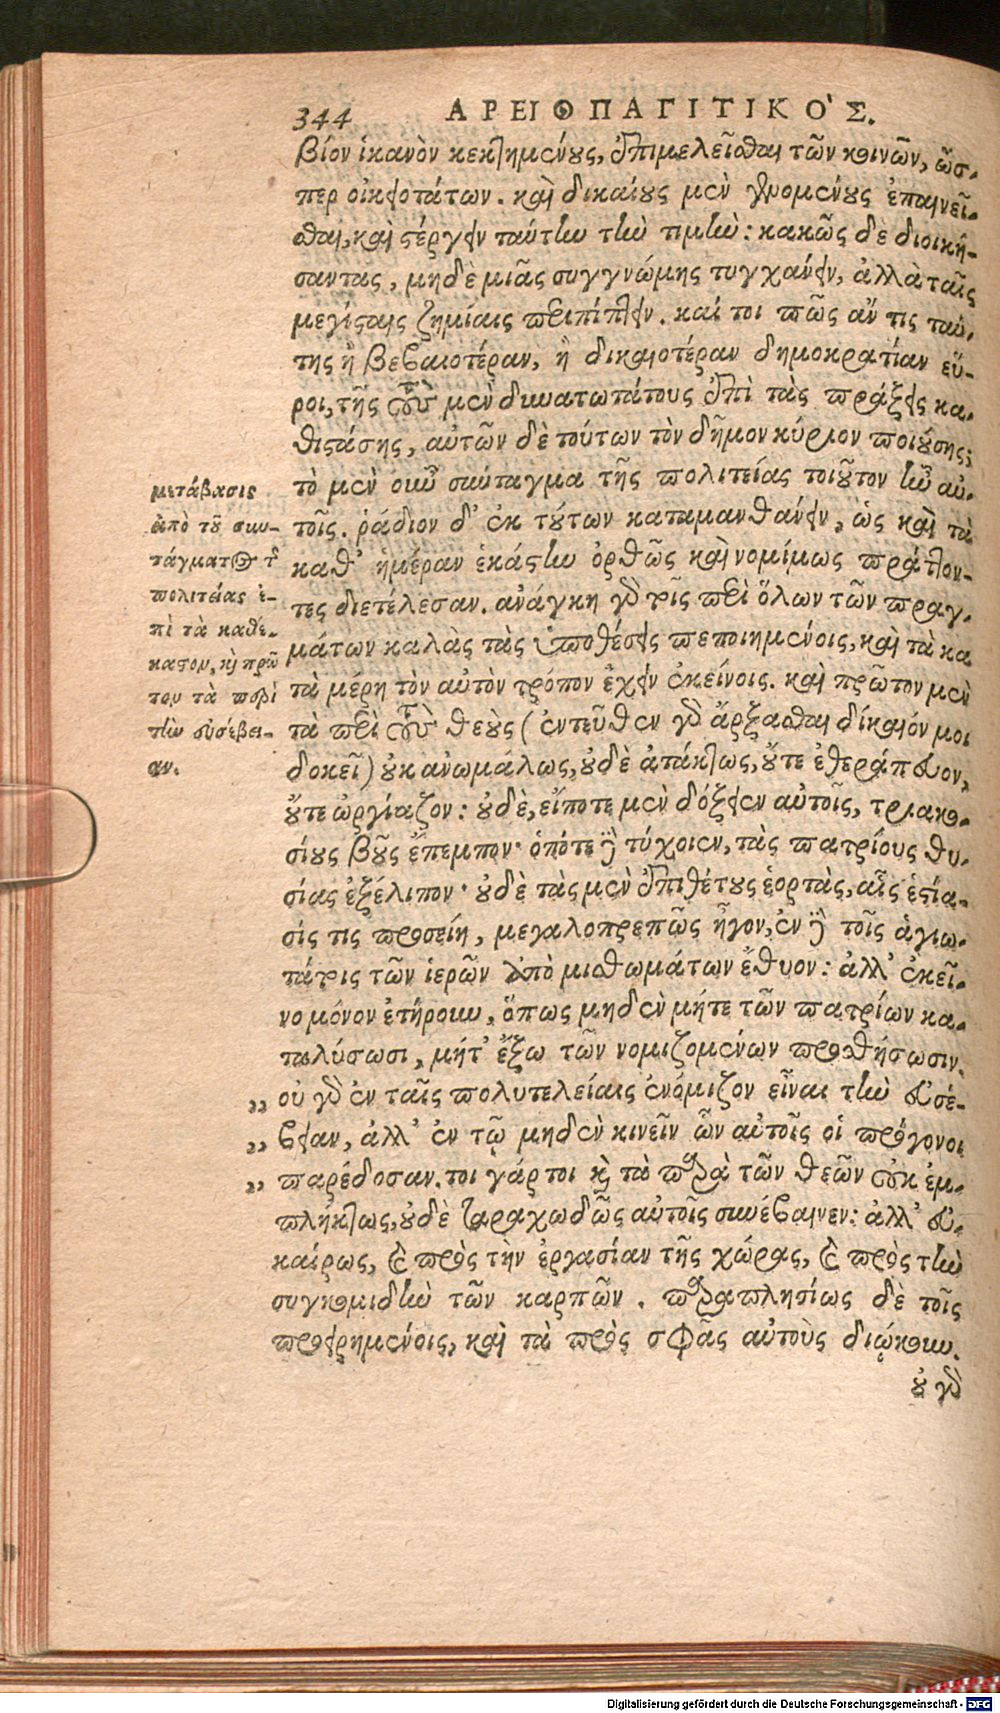 344 ΑΡΕΙΟΠΑΓΙΤΙΚΟ'Σ.
βίον ἱκανὸν κεκτημένους, ἐπιμελεῖσθαι τῶν κοινῶν, ὥσ-
περ οἰκειοτάτων. καὶ δικαίους μὲν γενομένους ἐπαινεῖ-
σθαι, καὶ στέργειν ταύτην τὴν τιμὴν: κακῶς δὲ διοική-
σαντας, μηδὲ μιᾶς συγγνώμης τυγχάνειν, ἀλλὰ ταῖς
μεγίσταις ζημίαις περιπίπτειν. καί τοι πῶς ἄν τις ταύ-
της ἢ βεβαιοτέραν, ἢ δικαιοτέραν δημοκρατίαν εὕ-
ροι, τῆς τοὺς μὲν δυνατωτάτους ἐπὶ τὰς πράξεις κα-
θιστάσης, αὐτῶν δὲ τούτων τὸν δῆμον κύριον ποιούσης;
τὸ μὲν οὖν σύνταγμα τῆς πολιτείας τοιοῦτον ἦν αὐ-
τοῖς. ῥᾴδιον δ' ἐκ τούτων καταμανθάνειν, ὡς καὶ τὰ
καθ' ἡμέραν ἑκάστην ὀρθῶς καὶ νομίμως πράττον-
τες διετέλεσαν. ἀνάγκη γὰρ τοῖς περὶ ὅλων τῶν πραγ-
μάτων καλὰς τὰς ὑποθέσεις πεποιημένοις, καὶ τὰ κα
τὰ μέρη τὸν αὐτὸν τρόπον ἔχειν ἐκείνοις. καὶ πρῶτον μὲν
τὰ περὶ τοὺς θεοὺς (ἐντεῦθεν γὰρ ἄρξασθαι δίκαιόν μοι
δοκεῖ) οὐκ ἀνωμάλως, οὐδὲ ἀτάκτως, οὔτε ἐθεράπευον,
οὔτε ὠργίαζον: οὐδὲ, εἴποτε μὲν δόξειεν αὐτοῖς, τριακο-
σίους βοῦς ἔπεμπον· ὁπότε δὲ τύχοιεν, τὰς πατρίους θυ-
σίας ἐξέλιπον· οὐδὲ τὰς μὲν ἐπιθέτους ἑορτὰς, αἷς ἑστία-
σίς τις προσείη, μεγαλοπρεπῶς ἦγον, ἐν δὲ τοῖς ἁγιω-
τάτοις τῶν ἱερῶν ἀπὸ μισθωμάτων ἔθυον: ἀλλ' ἐκεῖ-
νο μόνον ἐτήρουν, ὅπως μηδὲν μήτε τῶν πατρίων κα-
ταλύσωσι, μήτ' ἔξω τῶν νομιζομένων προσθήσωσιν.
,, οὐ γὰρ ἐν ταῖς πολυτελείαις ἐνόμιζον εἶναι τὴν εὐσέ-
,, βειαν, ἀλλ' ἐν τῷ μηδὲν κινεῖν ὧν αὐτοῖς οἱ πρόγονοι
,, παρέδοσαν. τοι γάρ τοι καὶ τὰ παρὰ τῶν θεῶν οὐκ ἐμ-
πλήκτως, οὐδὲ ταραχωδῶς αὐτοῖς συνέβαινεν: ἀλλ' εὐ-
καίρως, καὶ πρὸς τὴν ἐργασίαν τῆς χώρας, καὶ πρὸς τὴν
συγκομιδὴν τῶν καρπῶν. παραπλησίως δὲ τοῖς
προειρημένοις, καὶ τὰ πρὸς σφᾶς αὐτοὺς διῴκουν.
οὐ γὰρ
μετάβασις
ἀπὸ τοῦ συν-
τάγματος τῆς
πολιτείας ἐ-
πὶ τὰ καθέ-
καστον, καὶ πρῶ
τον τὰ περὶ
τὴν εὐσέβει-
αν.
Digitalisierung gefördert durch die Deutsche Forschungsgemeinschaft - DFG